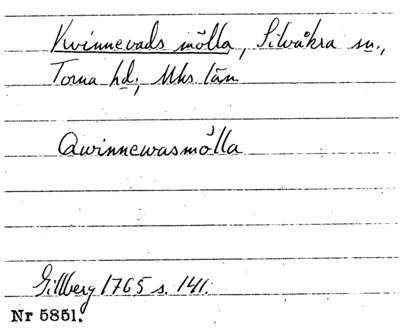 Kvinnevads mölla, Silvåkra sn.,
Torna hd., Mhs län
Qwinnewasmölla
Gillberg 1765 s. 141.
Nr 5851.